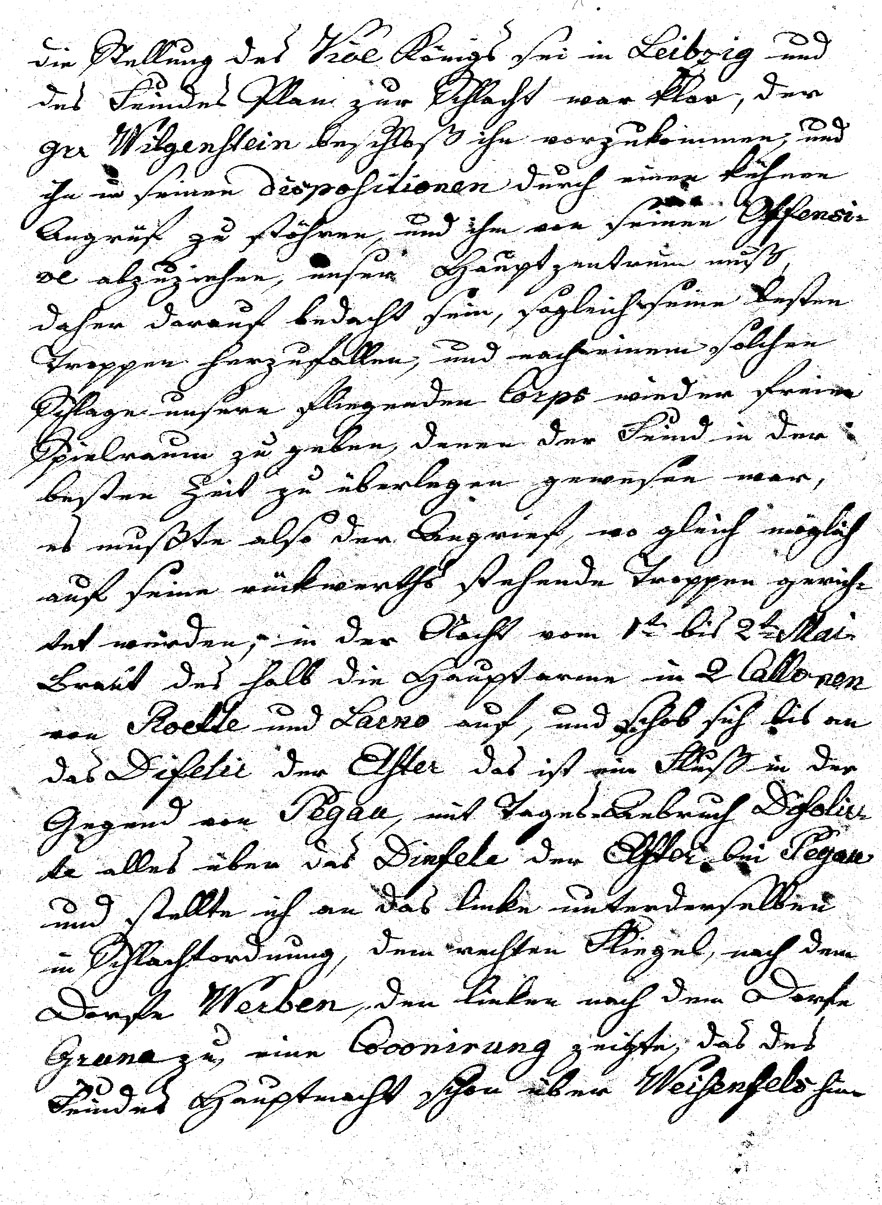 die Stellung des Vice Königs sei in Leibzig und
des Feindes Plan zur Schlacht war klar, der
Gr. Witgenstein beschloß ihn vorzukommen, und
ihn in seinen Dispositionen durch einen kühnen
Angrief zu stöhren, und ihn von seiner Offensi-
ve abzuziehen, unser Hauptzentrum muß,
daher darauf bedacht sein, sogleich seine besten
Troppen herzufallen, und nach einem solchen
Schlage unsern fliegenden Corps wieder freien
Spielraum zu geben, denen der Feind in der
besten Zeit zu überlegen gewesen war,
es mußte also der Angrief, wo gleich möglich
auf seine rückwerths stehende Troppen gerich-
tet werden, in der Nacht vom 1ten bis 2ten Mai
Braut des halb die Hauptarme in 2 Collonen
von Roette und auf, und schob sich bis an
das Difelie der Elster das ist ein Fluß in der
Gegend von Pegau, mit Tages Anbruch Difolir-
te alles über das Diefele der Elster bei Pegau
und stellte sich an das linke unterderselben
in Schlachtordnung, dem rechten Fliegel, nach dem
Dorfe Werben, den linken nach dem Dorfe
Gruna zu, eine zeigte, das des
Feindes Hauptmacht schon über Weisenfels hin-